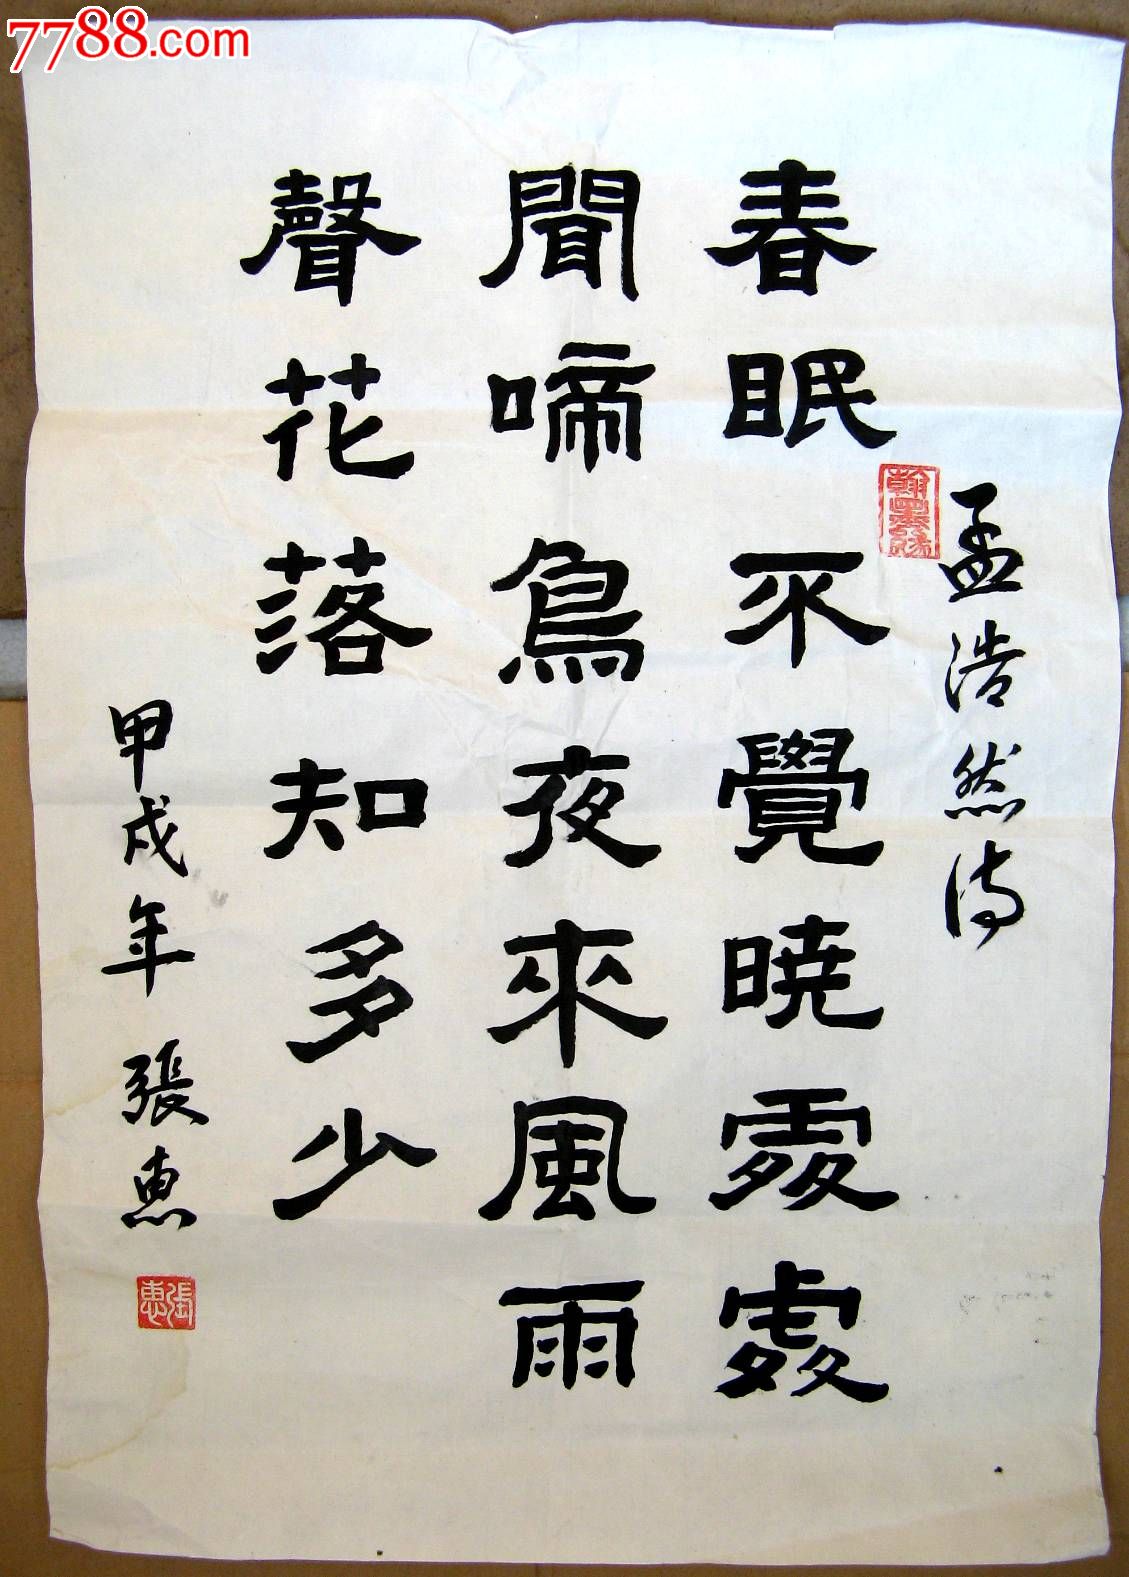 7788.com
孟浩然诗
春眠不覺曉處處
聞啼鳥夜來風雨
聲花落知多少
甲戌年 張惠
張惠